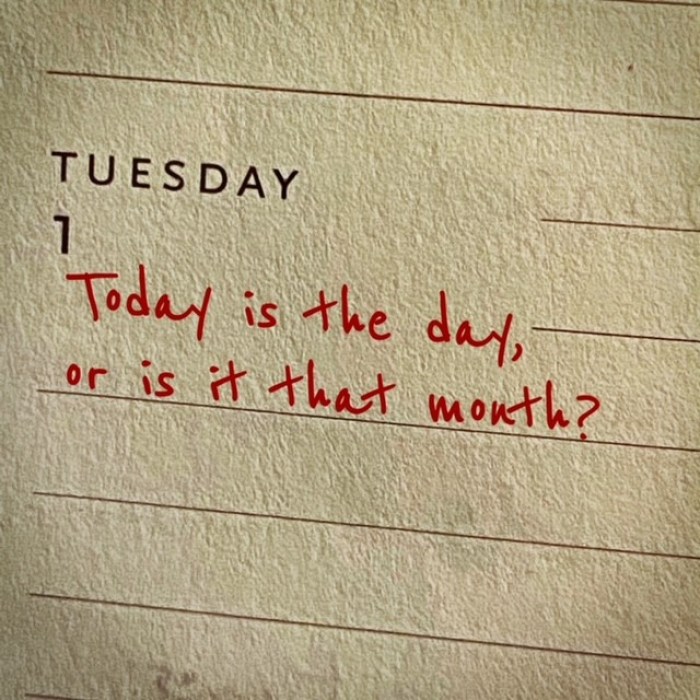 TUESDAY
1
Today is the day,
or is it that month?